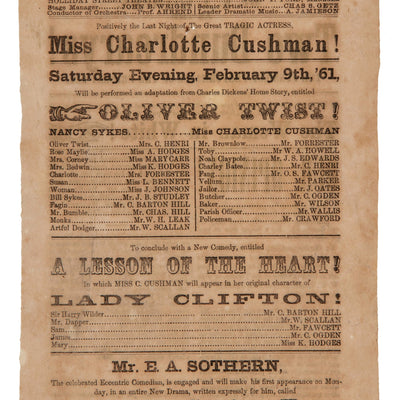 HOLLIDAY STREET THEATRE
Stage Manager JOHN B. WRIGHT Scenic Artist CHAS S. GETZ
Conductor of Orchestra Prof. AHREND Leader Dramatic Music A. JAMIESON
Positively the Last Night of The Great TRAGIC ACTRESS,
Miss Charlotte Cushman!
Saturday Evening, February 9th, '61,
Will be performed an adaptation from Charles Dickens' Home Story, entitled
OLIVER TWIST!
NANCY SYKES Miss CHARLOTTE CUSHMAN
Oliver Twist Mrs. C. HENRI Mr. Brownlow Mr. FORRESTER
Rose Maylie Miss A. HODGES Toby Mr. W. A. HOWELL
Mrs. Corney Miss MARY CARR Noah Claypole Mr. J. S. EDWARDS
Mrs. Bedwin Miss K. HODGES Charley Bates Mr. C. HENRI
Charlotte Mrs. FORRESTER Fang Mr. O. S. FAWCETT
Susan Miss L. BENNETT Vellum Mr. PARKER
Woman Miss J. JOHNSON Jailor Mr. J. OATES
Bill Sykes Mr. J. B. STUDLEY Butcher Mr. C. OGDEN
Fagin Mr. C. BARTON HILL Baker Mr. WILSON
Mr. Bumble Mr. CHAS. HILL Parish Officer Mr. WALLIS
Monks Mr. W. H. LEAK Policeman Mr. CRAWFORD
Artful Dodger Mr. W. SCALLAN
To conclude with a New Comedy, entitled
A LESSON OF THE HEART!
In which MISS C. CUSHMAN will appear in her original character of
LADY CLIFTON!
Sir Harry Wilder Mr. C. BARTON HILL
Mr. Dapper Mr. W. SCALLAN
Sam Mr. FAWCETT
James Mr. C. OGDEN
Mary Miss K. HODGES
Mr. E. A. SOTHERN,
The celebrated Eccentric Comedian, is engaged and will make his first appearance on Mon-
day, in an entire New Drama, written expressly for him, called